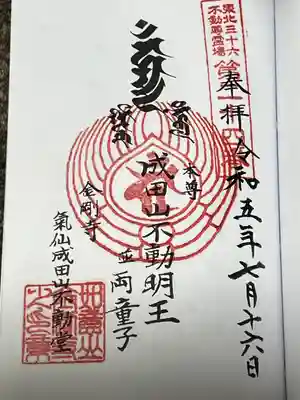 東北三十六
不動尊霊場
奉拝
令和五年七月十六日
本尊
成田山不動明王
並両童子
金剛寺
氣仙成田山不動堂